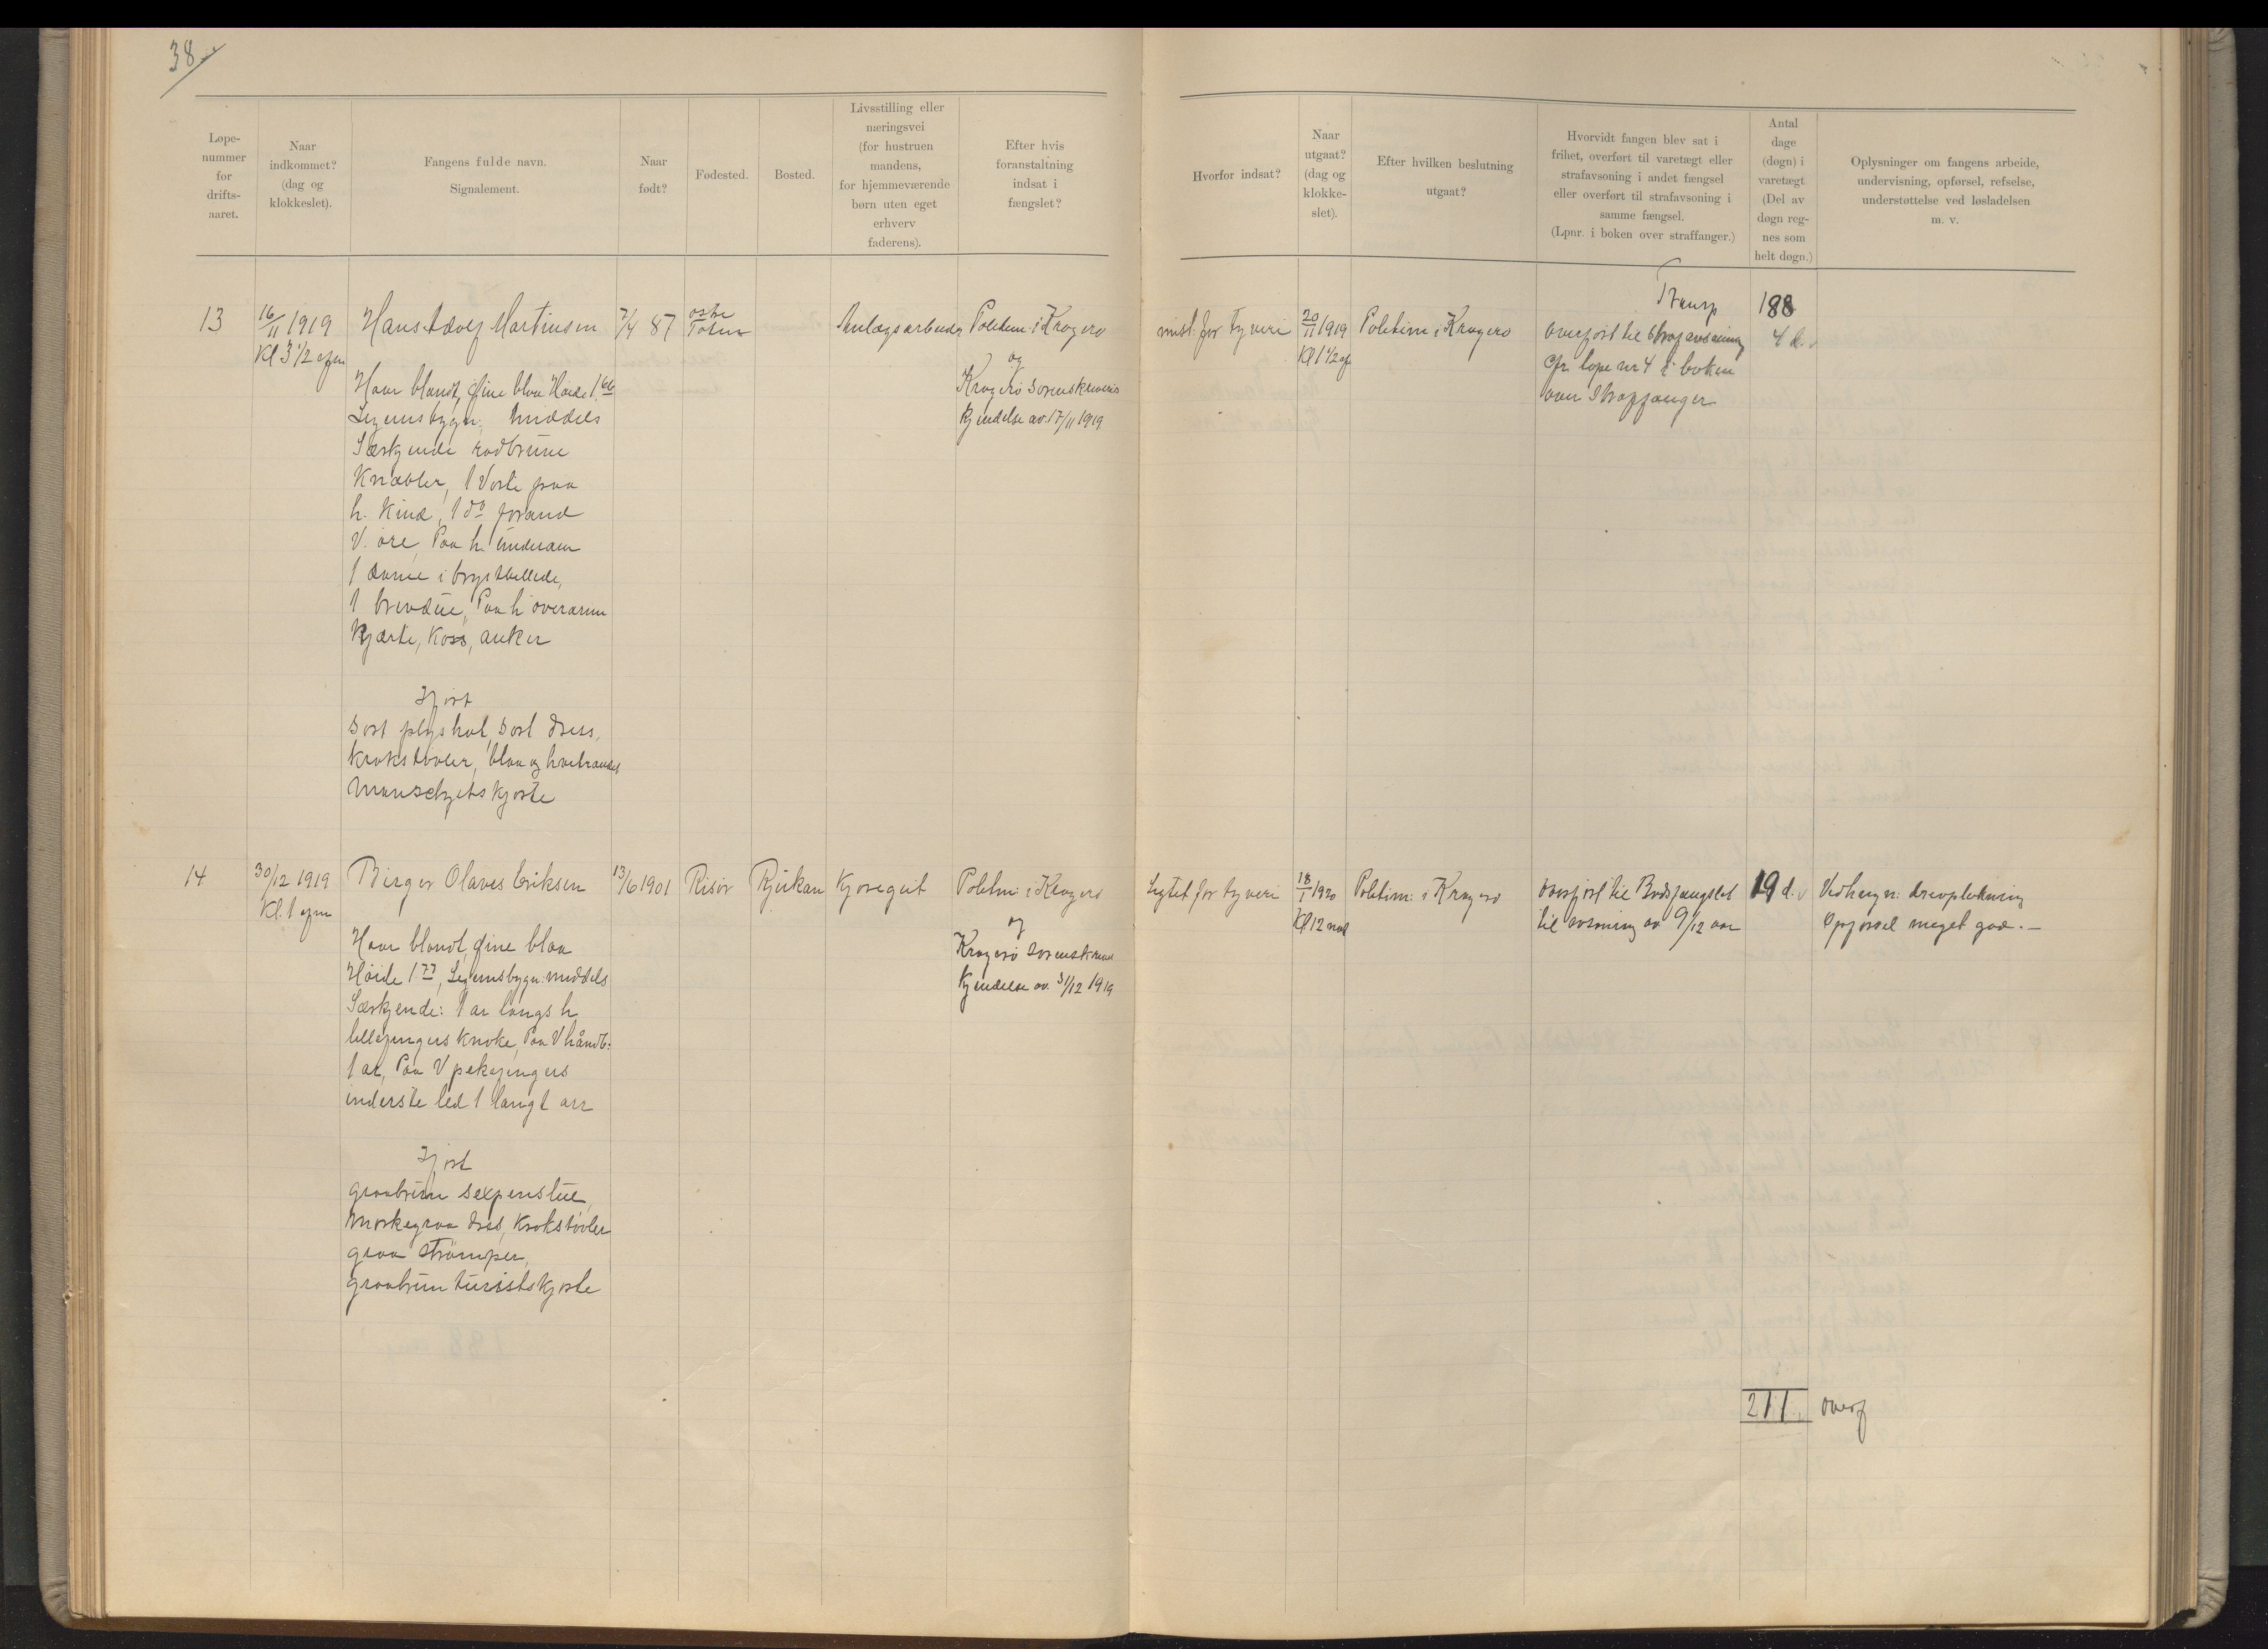 38
Løpe-
nummer
for
drifts-
aaret.
Naar
indkommet?
(dag og
klokkeslet).
Fangens fulde navn.
Signalement.
Naar
født?
Fødested.
Bosted.
Livsstilling eller
næringsvei
(for hustruen
mandens,
for hjemmeværende
børn uten eget
erhverv
faderens).
Efter hvis
foranstaltning
indsat i
fængslet?
Hvorfor indsat?
Naar
utgaat?
(dag og
klokke-
slet).
Efter hvilken beslutning
utgaat?
Hvorvidt fangen blev sat i
frihet, overført til varetægt eller
strafavsoning i andet fængsel
eller overført til strafavsoning i
samme fængsel.
(Lpnr. i boken over straffanger.)
Antal
dage
(døgn) i
varetægt
(Del av
døgn reg-
nes som
helt døgn.)
Oplysninger om fangens arbeide,
undervisning, opførsel, refselse,
understøttelse ved løsladelsen
m. v.
Transp 188
13
16/11 1919
Kl 3 1/2 efm
Hans Adolf Martinsen
7/4 87
østre
Toten
Anlægsarbeider
Politim: i Kragerø
og
Kragerø Sorenskriveris
Kjendelse av 17/11 1919
Haar blondt, Øine blaa Høide 1.66
Legemsbygn: middels
Særkjende rødbrune
Knæbler, 1 Vorte paa
h. Kind, 1 do forand
V. øre, Paa h. underarm
1 dame i brystbillede,
1 brevdue, Paa h overarm
Hjerte, Kors, anker
Iført
Sort plyshat, Sort dress,
Krokstøvler, blaa og hvitrandet
Manschetskjorte
mist: for tyveri
20/11 1919
Kl 1 1/2 ef
Politim i Kragerø
overført til Strafavsoning
cfr. løpe nr 4 i boken
over Straffanger
4 d.
14
30/12 1919
Kl. 1 efm
Birger Olaves Eriksen
13/6 1901
Risør
Rjukan
Kjøregut
Politm: i Kragerø
og
Kragerø Sorenskriveri
Kjendelse av. 31/12 1919
Haar blondt, Øine blaa
Høide 1.77, Legemsbygn: middels
Særkjende: 1 ar langs h
lillefingers knoke, Paa V håndb:
1 ar, Paa V pekefingers
inderste led 1 langt arr
Iført
graabrun sexpenslue,
mørkegraa dress, Krokstøvler
graa strømper,
graabrun turistskjorte
Sigtet for tyveri
18/1 1920
Kl 12 md
Politim: i Kragerø
overført til Bodsfængslet
til avsoning av 9/12 aar
19 d.
Vedhugn: drevplukning
Opførsel meget god. —
211. overf